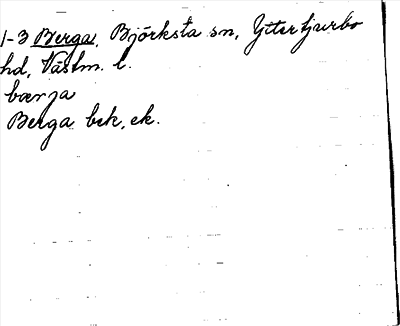 1-3 Berga, Björksta sn, Yttertjurbo
hd, Västm. l.
bærja
Berga bek, ek.